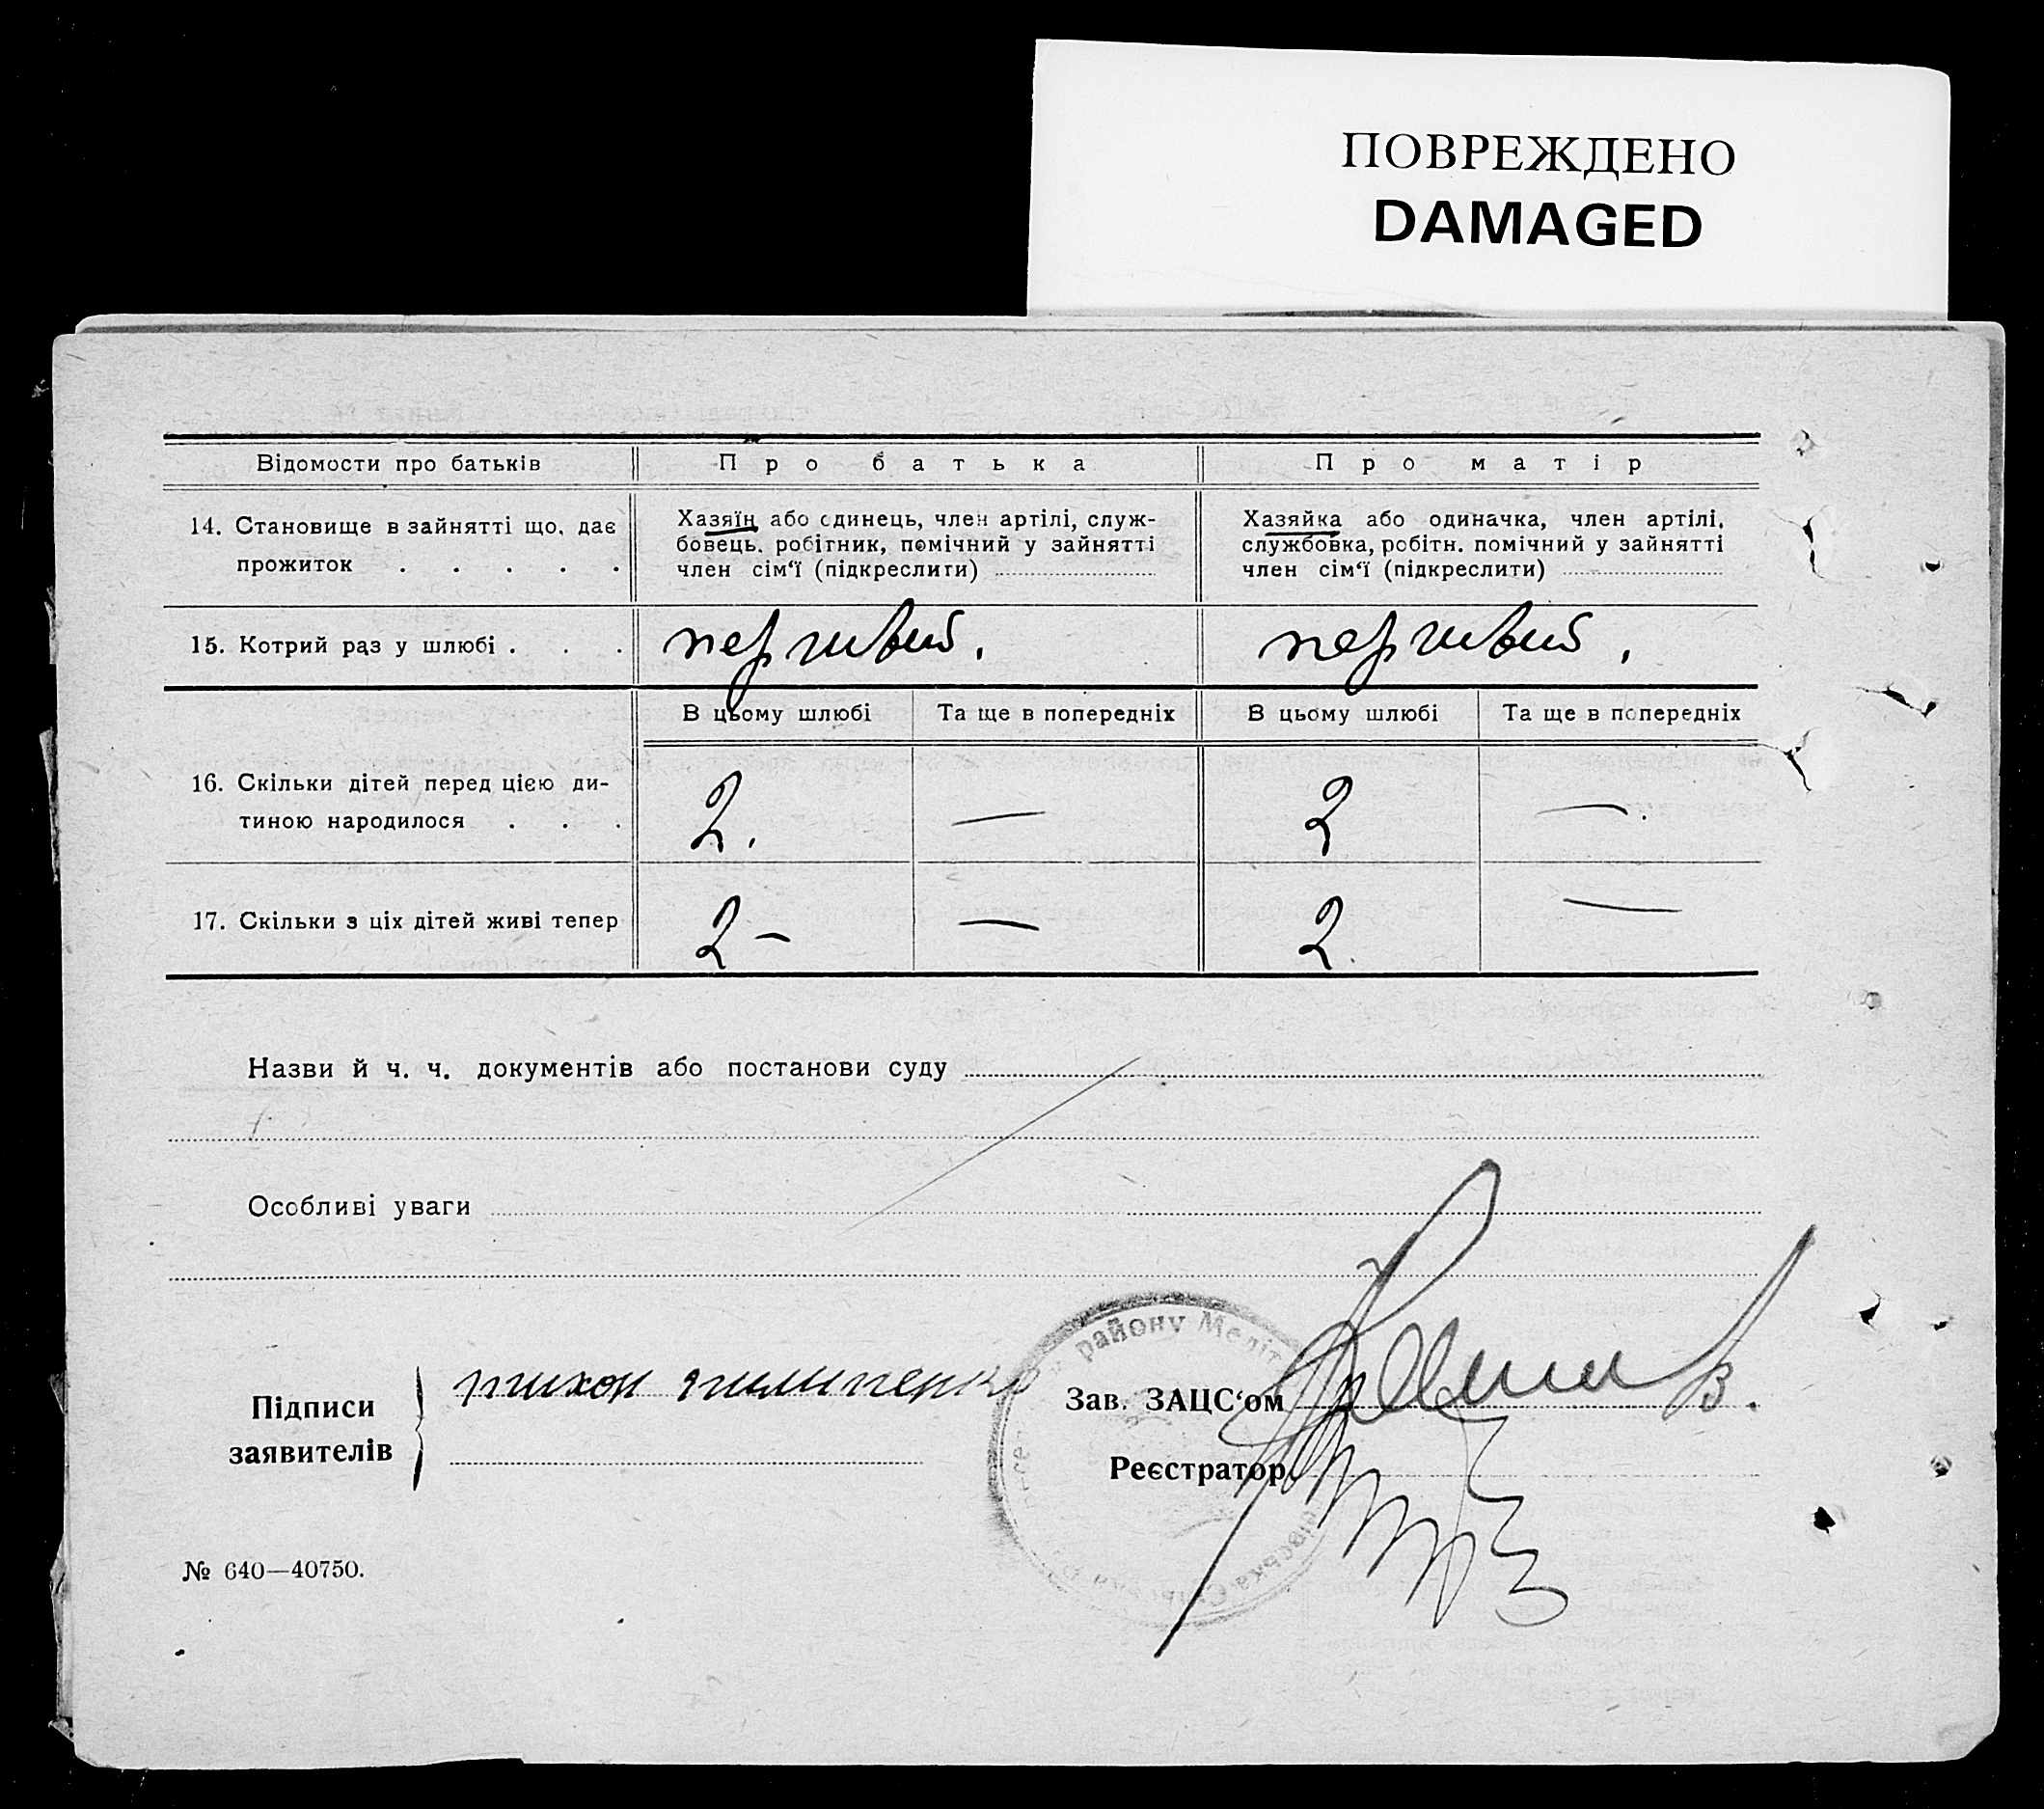 ПОВРЕЖДЕНО
DAMAGED
Відомости про батьків
Про батька
Про матір
14. Становище в зайнятті що, дає
прожиток . . . . .
Хазяїн або єдинець, член артілі, служ-
бовець. робітник, помічний у зайнятті
член сім‘ї (підкреслити)
Хазяйка або одиначка, член артілі,
службовка, робітн. помічний у зайнятті
член сім‘ї (підкреслити)
15. Котрий раз у шлюбі . . .
першвий.
першвий.
В цьому шлюбі
Та ще в попередніх
В цьому шлюбі
Та ще в попередніх
16. Скільки дітей перед цією ди-
тиною народилося . . .
2.
—
2
—.
17. Скільки з ціх дітей живі тепер
2 –
—
2.
—
Назви й ч. ч. документів або постанови суду
Особливі уваги
Підписи
заявителів
тихон
району Меліт
івська Сільськ
Зав. ЗАЦС‘ом
Реєстратор
№ 640—40750.